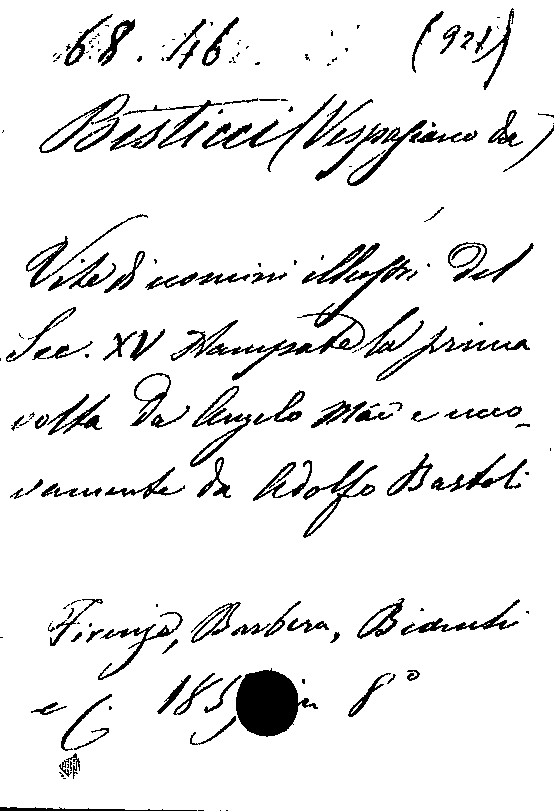 68. 46. (921)
Bisticci (Vespasiano da)
Vite di uomini illustri del
Sec. XV stampate la prima
volta da Angelo Mai e nuo-
vamente da Adolfo Bartoli
Firenze, Barbera, Bianchi
e C. 185 in 8°